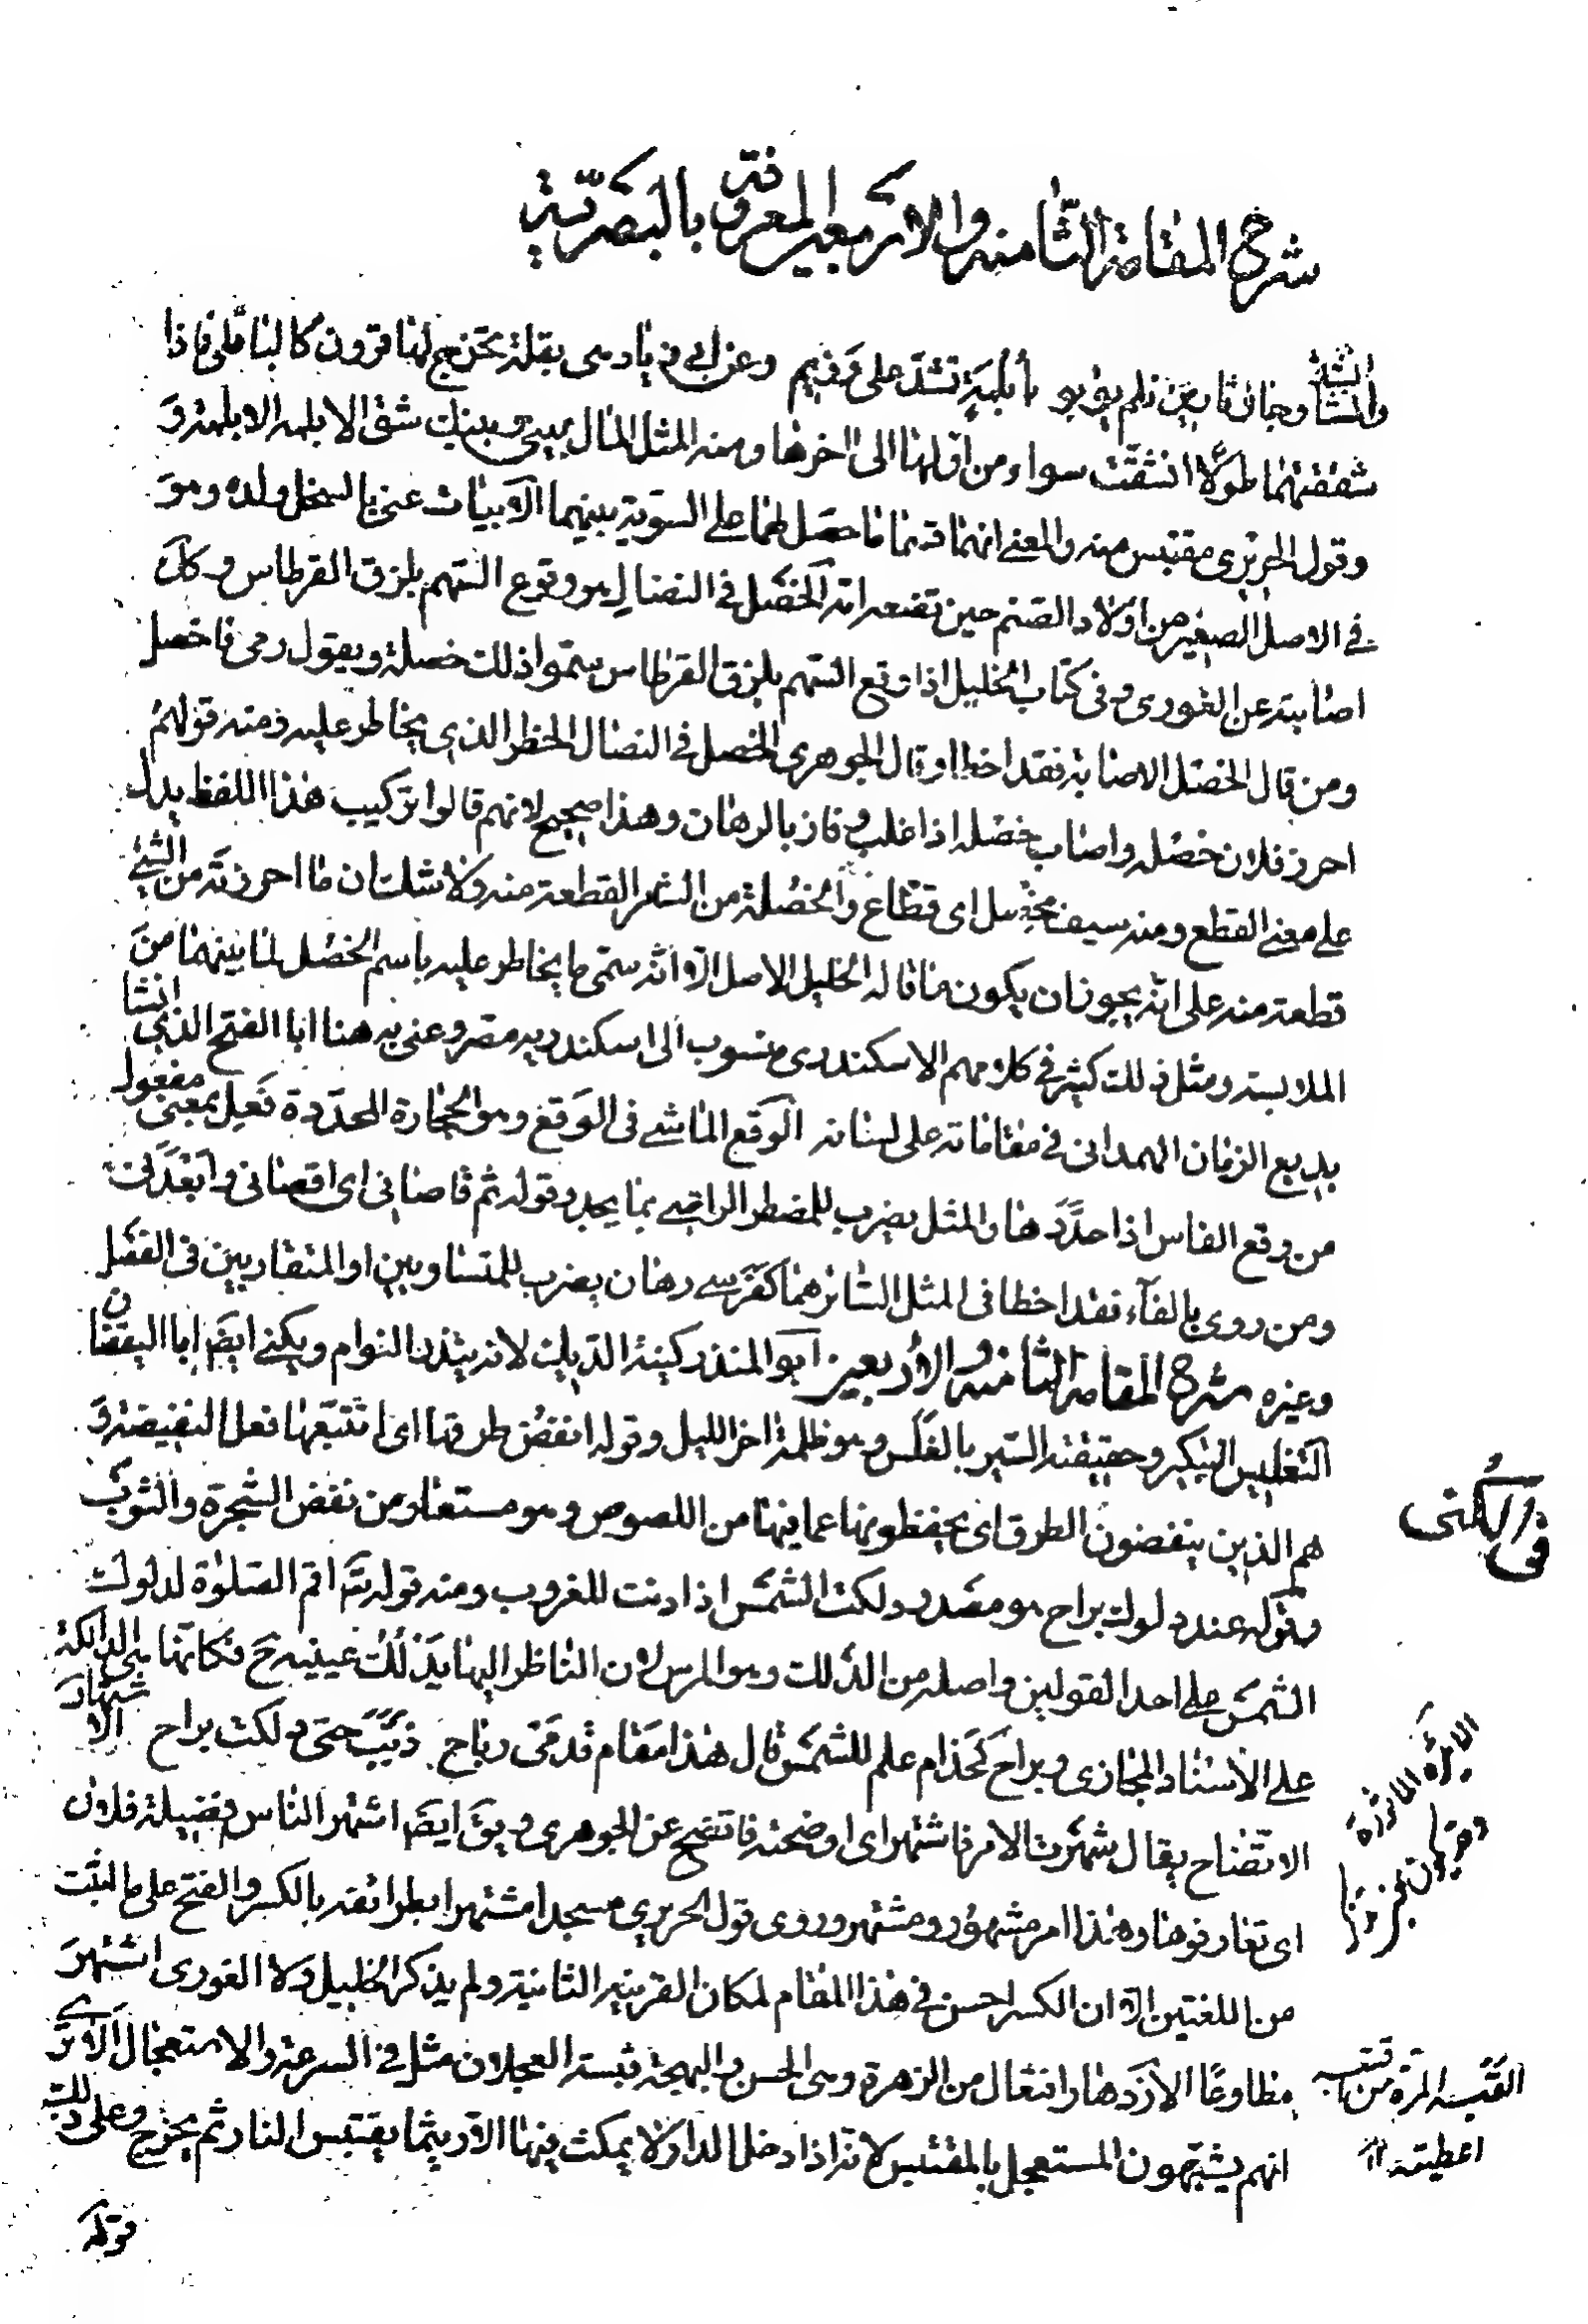 شرح المقامة الثامنة والاربعين المعروفة بالبصرية
وجاؤا تابين فلم يؤبوا بأبلمة تشد على وعن ابي زياد هى بقلة تخرج لها قرون كالباقلى فاذا
شققتهما طولًا انشقت سواء من اولها الى اخرها ومنه المثل المال بينى وبينك شق الابلمه الابلمة و
وقول الحريرى مقتبس منه والمعنى انهما قسما ما حصل لهما على السوية بينهما الابيات عنى بالسخل ولده وهو
فى الاصل الصغير من اولاد الضنم حين تضعه امه الخصل فى النضال هو وقوع السهم بلزق القرطاس وكل
اصابته عن الغورى وفى كتاب الخليل اذا وقع السهم بلزق القرطاس سموا ذلك خصلة ويقول رمى فاخصل
ومن قال الخصل الاصابة فقد اخطا وقال الجوهرى الخصل فى النضال الخطر الذى يخاطر عليه ومنه قولهم
احرز فلان خصله واصاب خصله اذا غلب وفاز بالرهان وهذا صحيح لانهم قالوا تركيب هذا اللفظ يدل
على معنى القطع ومنه سيف مخصل اى قطاع والخصلة من الشعر القطعة منه ولا شك ان ما احرزته من الشئ
قطعة منه على انه يجوز ان يكون ما قاله الخليل الاصل الا انه سمى ما يخاطر عليه باسم الخصل لما بينهما من
الملابسة ومثل ذلك كثير فى كلامهم الاسكندرى منسوب الى اسكندريه مصر وعنى به هنا ابا الفتح الذى انشا
بديع الزمان الهمدانى فى مقاماته على لسانه الوقع الماشى فى الوقع وهو الحجارة المحددة فعيل بمعنى مفعول
من وقع الفاس اذا حددها والمثل يضرب للمضطر الراضى بما يجد وقوله ثم قاصانى اى اقصانى وابعدنى
ومن روى بالفاء فقد اخطا فى المثل السائر هما كفرسى رهان يضرب للمتساويين او المتقاربين فى الفضل
وغيره شرح المقامة الثامنة والأربعين ابو المنذر كنية الديك لانه ينذر النوام ويكنى ايض ابا اليقظان
التغليس التبكير وحقيقته السير بالغلس وهو ظلمة اخر الليل وقوله انفض طرقها اى اتتبعها فعل النفيضة و
هم الذين ينفضون الطرق اى يحفظونها عما فيها من اللصوص وهو مستعار من نفض الشجرة والثوب
وقوله عند دلوك براح هو مصدر دلكت الشمس اذا دنت للغروب ومنه قوله تع اقم الصلوة لدلوك
الشمس على احد القولين واصله من الدلك وهو المرس لان الناظر اليها يدلك عينيه ح فكانها هى الدالكة
على الاسناد المجازى وبراح كحذام علم للشمس قال هذا مقام قدمى رباح ذبب حتى دلكت براح الاشتهار
الاتضاح يقال شهرت الامر فاشتهر اى اوضحته فاتضح عن الجوهرى ويق ايض اشتهر الناس بفضيلة فلان
اى تعارفوها وهذا امر مشهور ومشتهر وروى قول الحريرى مسجدا مشتهرا بطرائفه بالكسر والفتح على ما اثبت
من اللغتين الا ان الكسر احسن فى هذا المقام لمكان القرينه الثانية ولم يذكر الخليل ولا الغورى اشتهر
مطاوعًا الازدهار افتعال من الزهرة وهى الحسن والبهجة قبسة العجلان مثل فى السرعة والاستعجال الا ترى
انهم يشبهون المستعجل بالمقتبس لانه اذا دخل الدار لا يمكث فيها الا ريثما يقتبس النار ثم يخرج وعلى ذلك
قوله
فى الكنى
القبسه المرة من قبسه
اعطيته